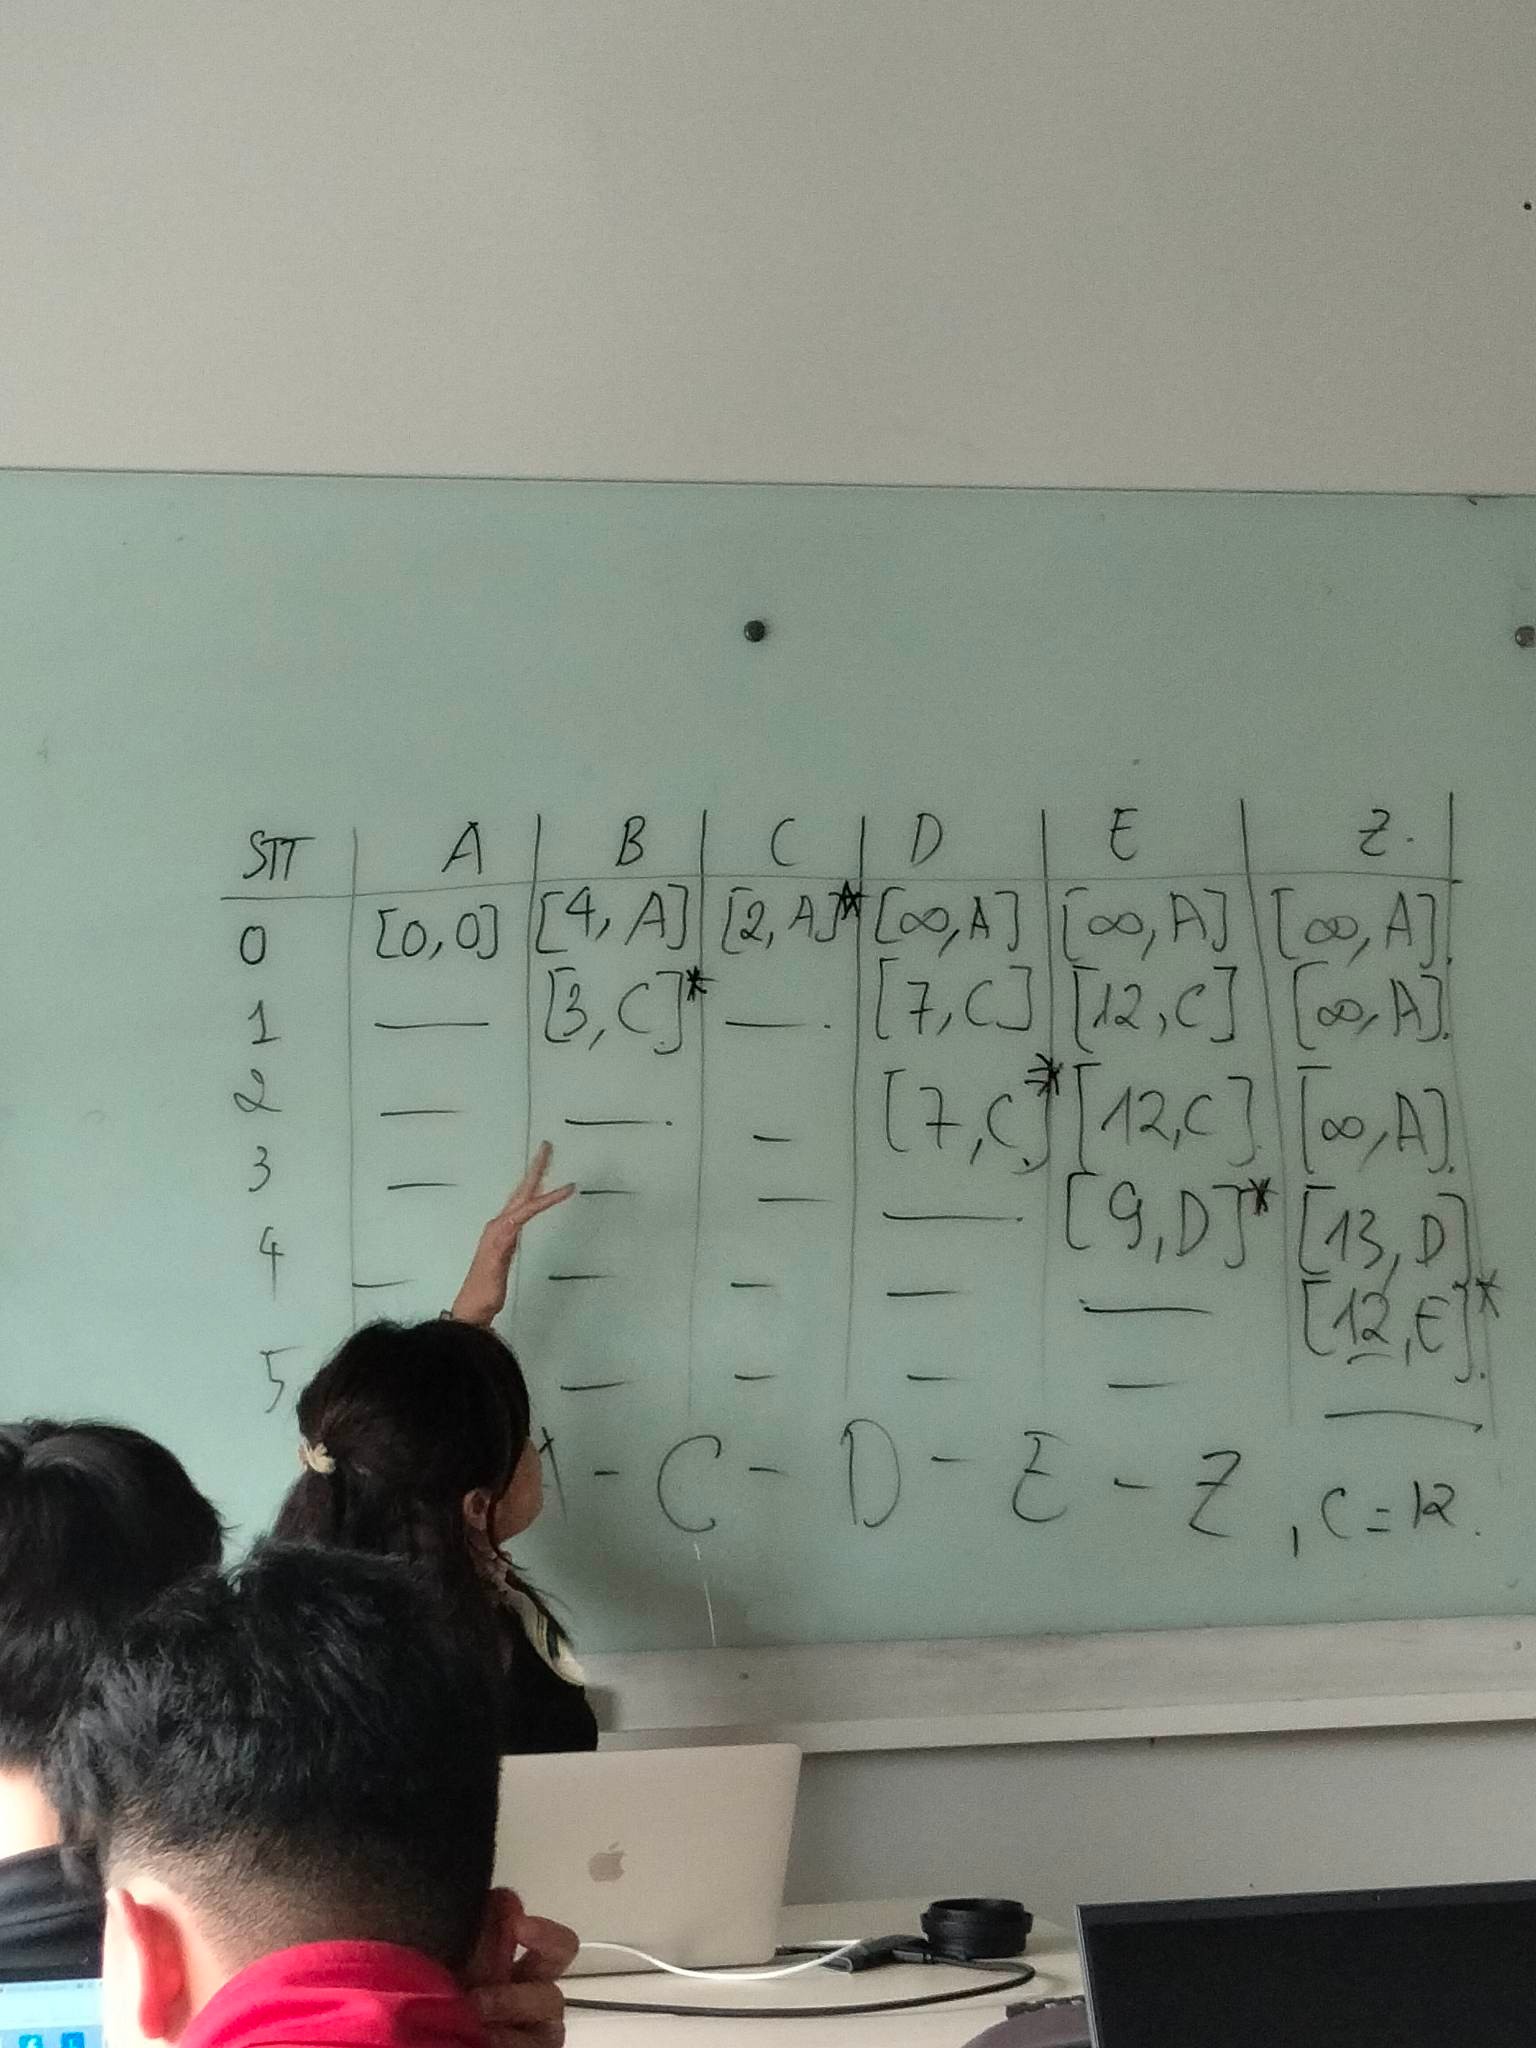 STT | A | B | C | D | E | Z.
0 | [0,0] | [4, A] | [2, A]* | [∞, A] | [∞, A] | [∞, A].
1 | — | [3, C]* | —. | [7, C] | [12, C] | [∞, A].
2 | — | —. | — | [7, C.]* | [12, C]. | [∞, A].
3 | — | — | — | — | [9, D]* | [13, D]
4 | — | — | — | — | — | [12, E]*.
5 | — | — | — | — | —
A - C - D - E - Z, C = 12.